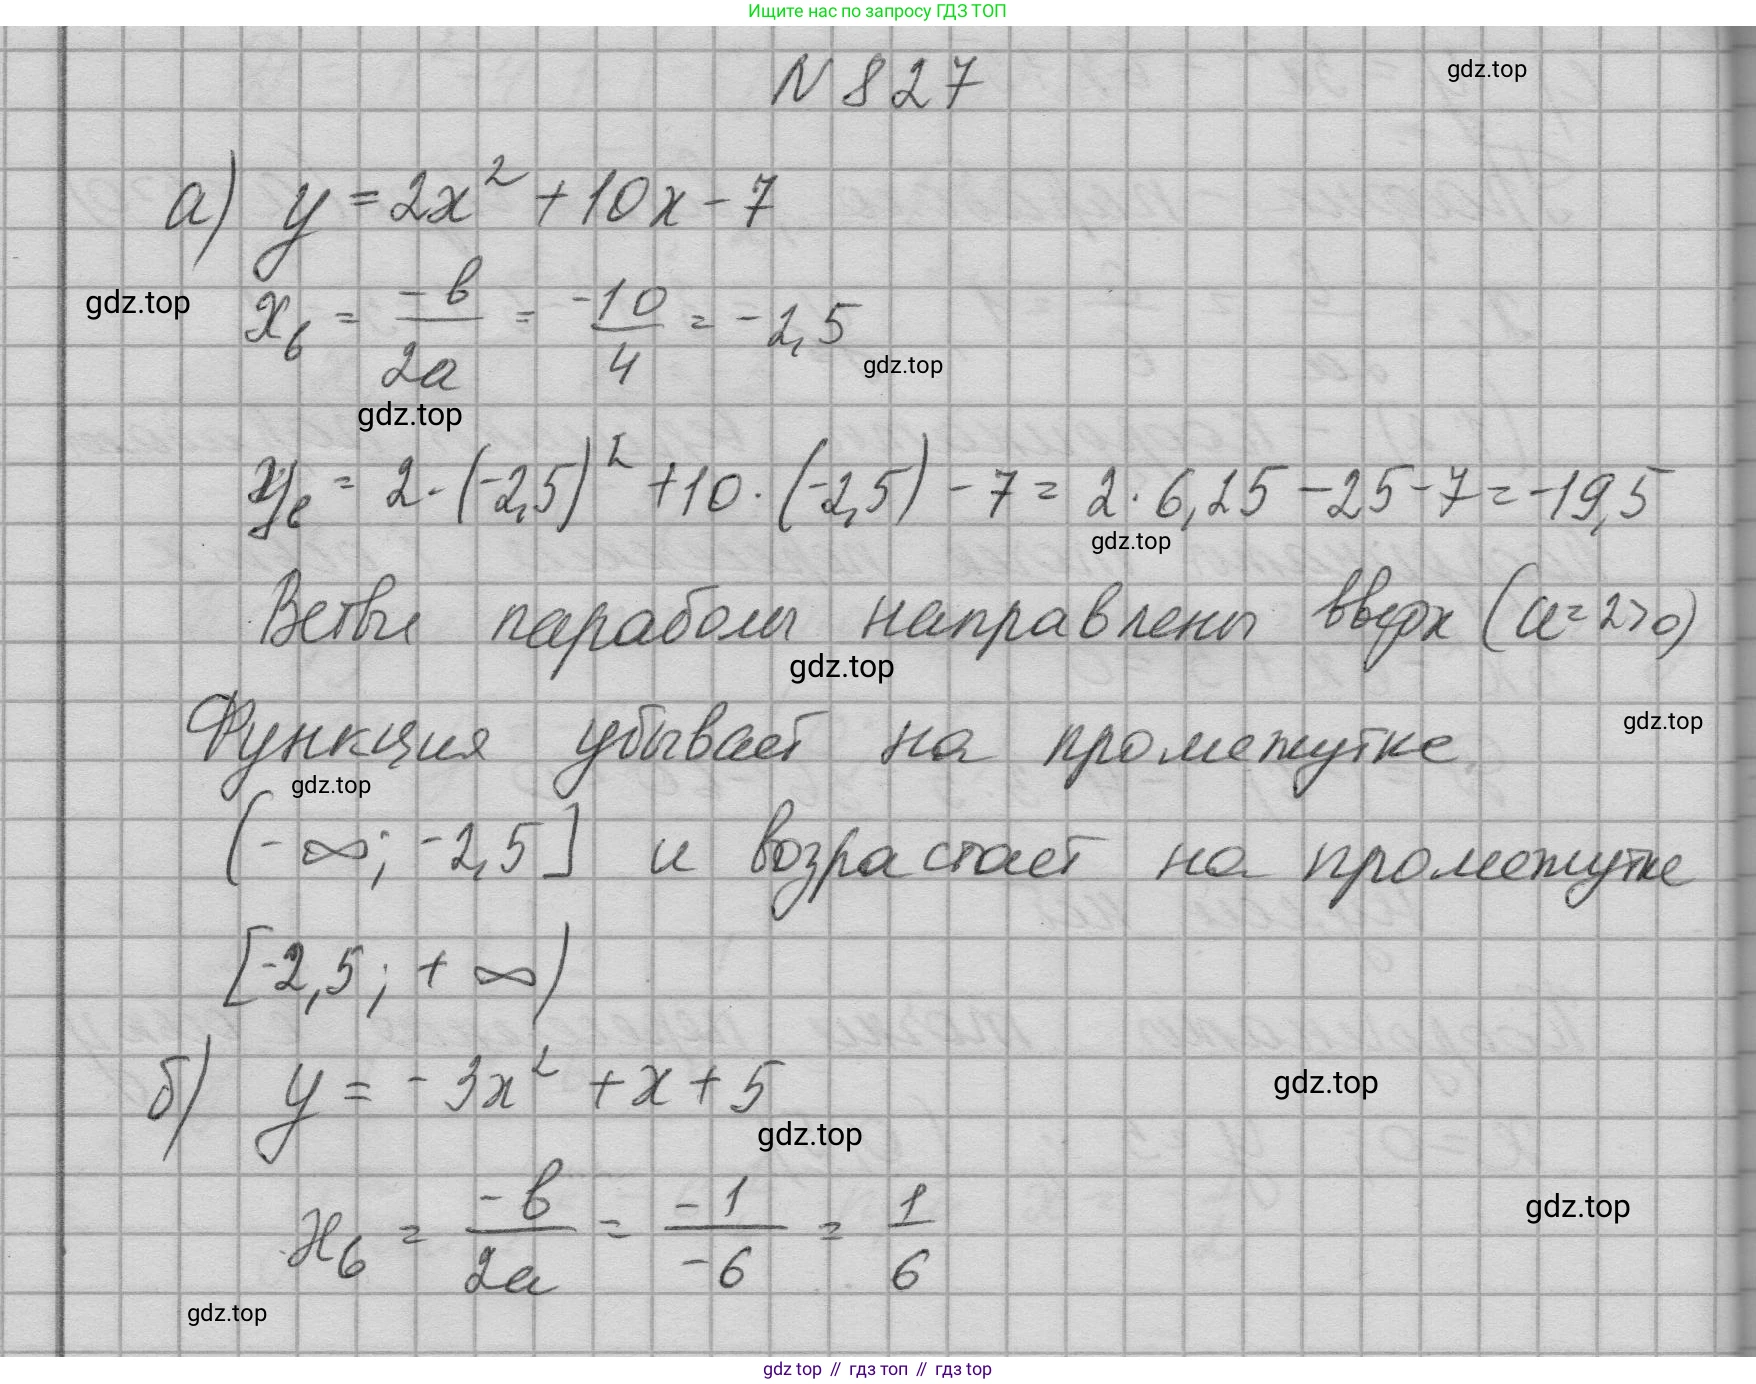 Ищите нас по запросу ГДЗ ТОП
N 827
gdz.top
а) y = 2x² + 10x - 7
gdz.top
x_в = -b/2a = -10/4 = -2,5
gdz.top
gdz.top
y_в = 2·(-2,5)² + 10·(-2,5) - 7 = 2·6,25 - 25 - 7 = -19,5
gdz.top
Ветви параболы направлены вверх (a=2>0)
gdz.top
Функция убывает на промежутке
gdz.top
gdz.top
(-∞; -2,5] и возрастает на промежутке
[-2,5; +∞)
б) y = -3x² + x + 5
gdz.top
gdz.top
x_в = -b/2a = -1/-6 = 1/6
gdz.top
gdz.top
gdz.top // гдз топ // гдз top